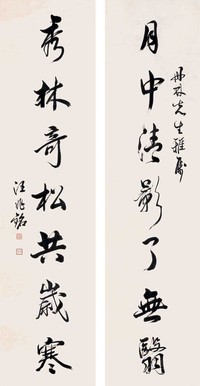 月中清影了無翳
丹林先生雅屬
秀林奇松共歲寒
汪兆銘